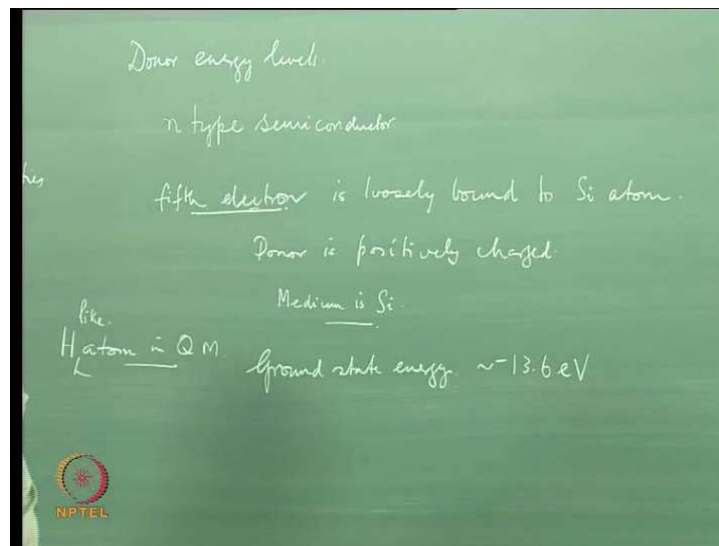 Donor energy levels.
n type semiconductor
fifth electron is loosely bound to Si atom.
Donor is positively charged.
Medium is Si.
like
H atom in QM. Ground state energy ~ -13.6 eV
NPTEL